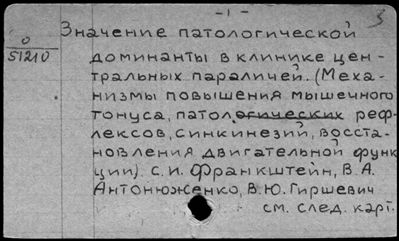 - 1 -
3
Значение патологической
О
51210
доминанты в клинике цен-
тральных параличей. (Меха-
низмы повышения мышечного
тонуса, патологических реф-
лексов, синкинезий, восста-
новления двигательной функ
ции). С. И. Франкштейн, В. А.
Антонюженко, В. Ю. Гиршевич
см. след. карт.